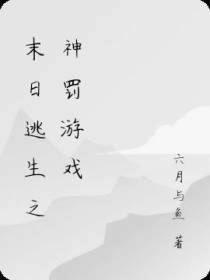 末日逃生之
神罚游戏
六月与鱼 著